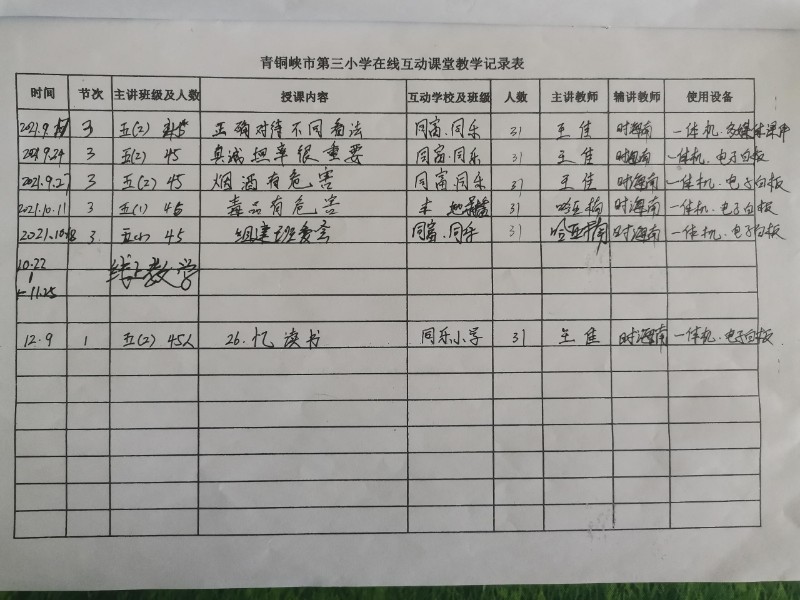 青铜峡市第三小学在线互动课堂教学记录表
时间 节次 主讲班级及人数 授课内容 互动学校及班级 人数 主讲教师 辅讲教师 使用设备
2021.9. 3 五(2) 45 正确对待不同看法 同富.同乐 31 王佳 时海南 一体机.多媒体课件
2021.9.24 3 五(2) 45 真诚坦率很重要 同富.同乐 31 王佳 时海南 一体机.电子白板
2021.9.27 3 五(2) 45 烟酒有危害 同富.同乐 31 王佳 时海南 一体机.电子白板
2021.10.11 3 五(1) 45 毒品有危害 31 哈亚楠 时海南 一体机.电子白板
2021.10.18 3 五(1) 45 组建班委会 同富.同乐 31 哈亚楠 时海南 一体机.电子白板
10.22 线上教学
11.25
12.9 1 五(2) 45人 26.忆读书 同乐小学 31 王佳 时海南 一体机.电子白板